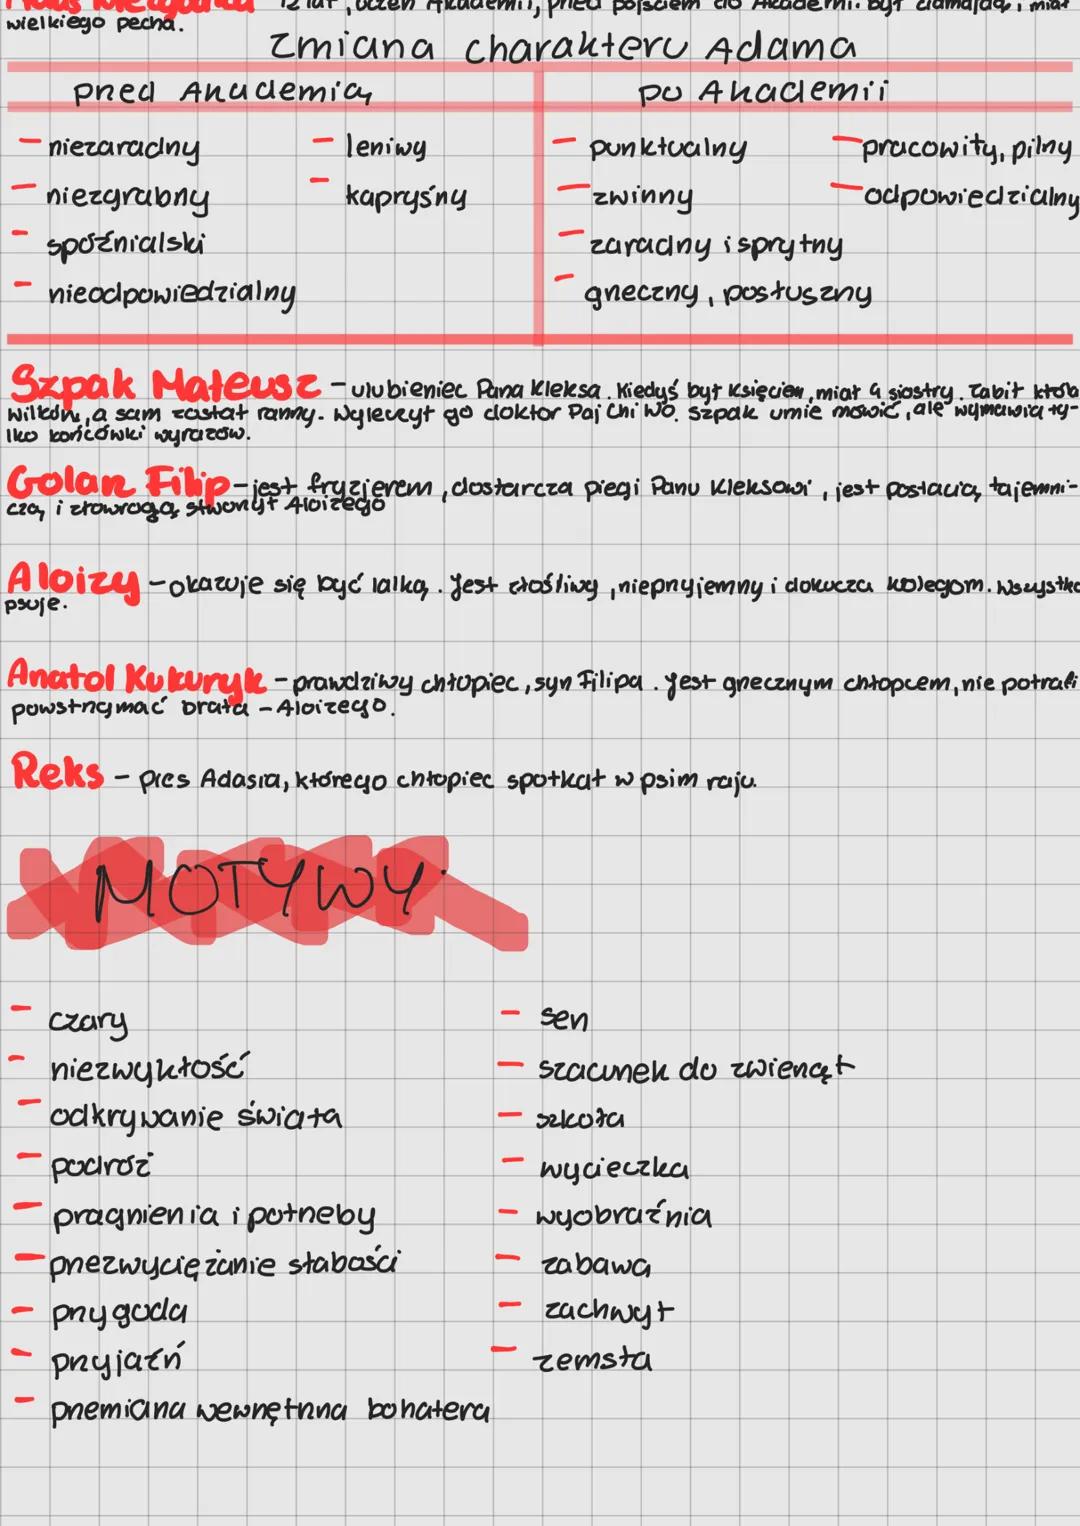 12 lat, uczeń Akademii, przed pójściem do Akademii. był ciamajdą, i miał
wielkiego pecha.
Zmiana charakteru Adama
przed Akademią po Akademii
- niezaradny - leniwy - punktualny - pracowity, pilny
- niezgrabny - kapryśny - zwinny - odpowiedzialny
- spóźnialski - zaradny i sprytny
- nieodpowiedzialny grzeczny, posłuszny
Szpak Mateusz - ulubieniec Pana Kleksa. Kiedyś był Księciem, miał 4 siostry. Zabił króla
wilków, a sam został ranny. Wyleczył go doktor Paj Chi Wo. Szpak umie mówić, ale wymawia ty-
lko końcówki wyrazów.
Golarz Filip - jest fryzjerem, dostarcza piegi Panu Kleksowi, jest postacią tajemni-
czą i złowrogą, stworzył Aloizego
Aloizy - okazuje się być lalką. Jest złośliwy, nieprzyjemny i dokucza kolegom. Wszystko
psuje.
Anatol Kukuryk - prawdziwy chłopiec, syn Filipa. Jest grzecznym chłopcem, nie potrafi
powstrzymać brata - Aloizego.
Reks - pies Adasia, którego chłopiec spotkał w psim raju.
MOTYWY
- czary - sen
- niezwykłość - szacunek do zwierząt
- odkrywanie świata - szkoła
- podróż - wycieczka
- pragnienia i potrzeby - wyobraźnia
- przezwyciężanie słabości - zabawa
- przygoda - zachwyt
- przyjaźń - zemsta
- przemiana wewnętrzna bohatera